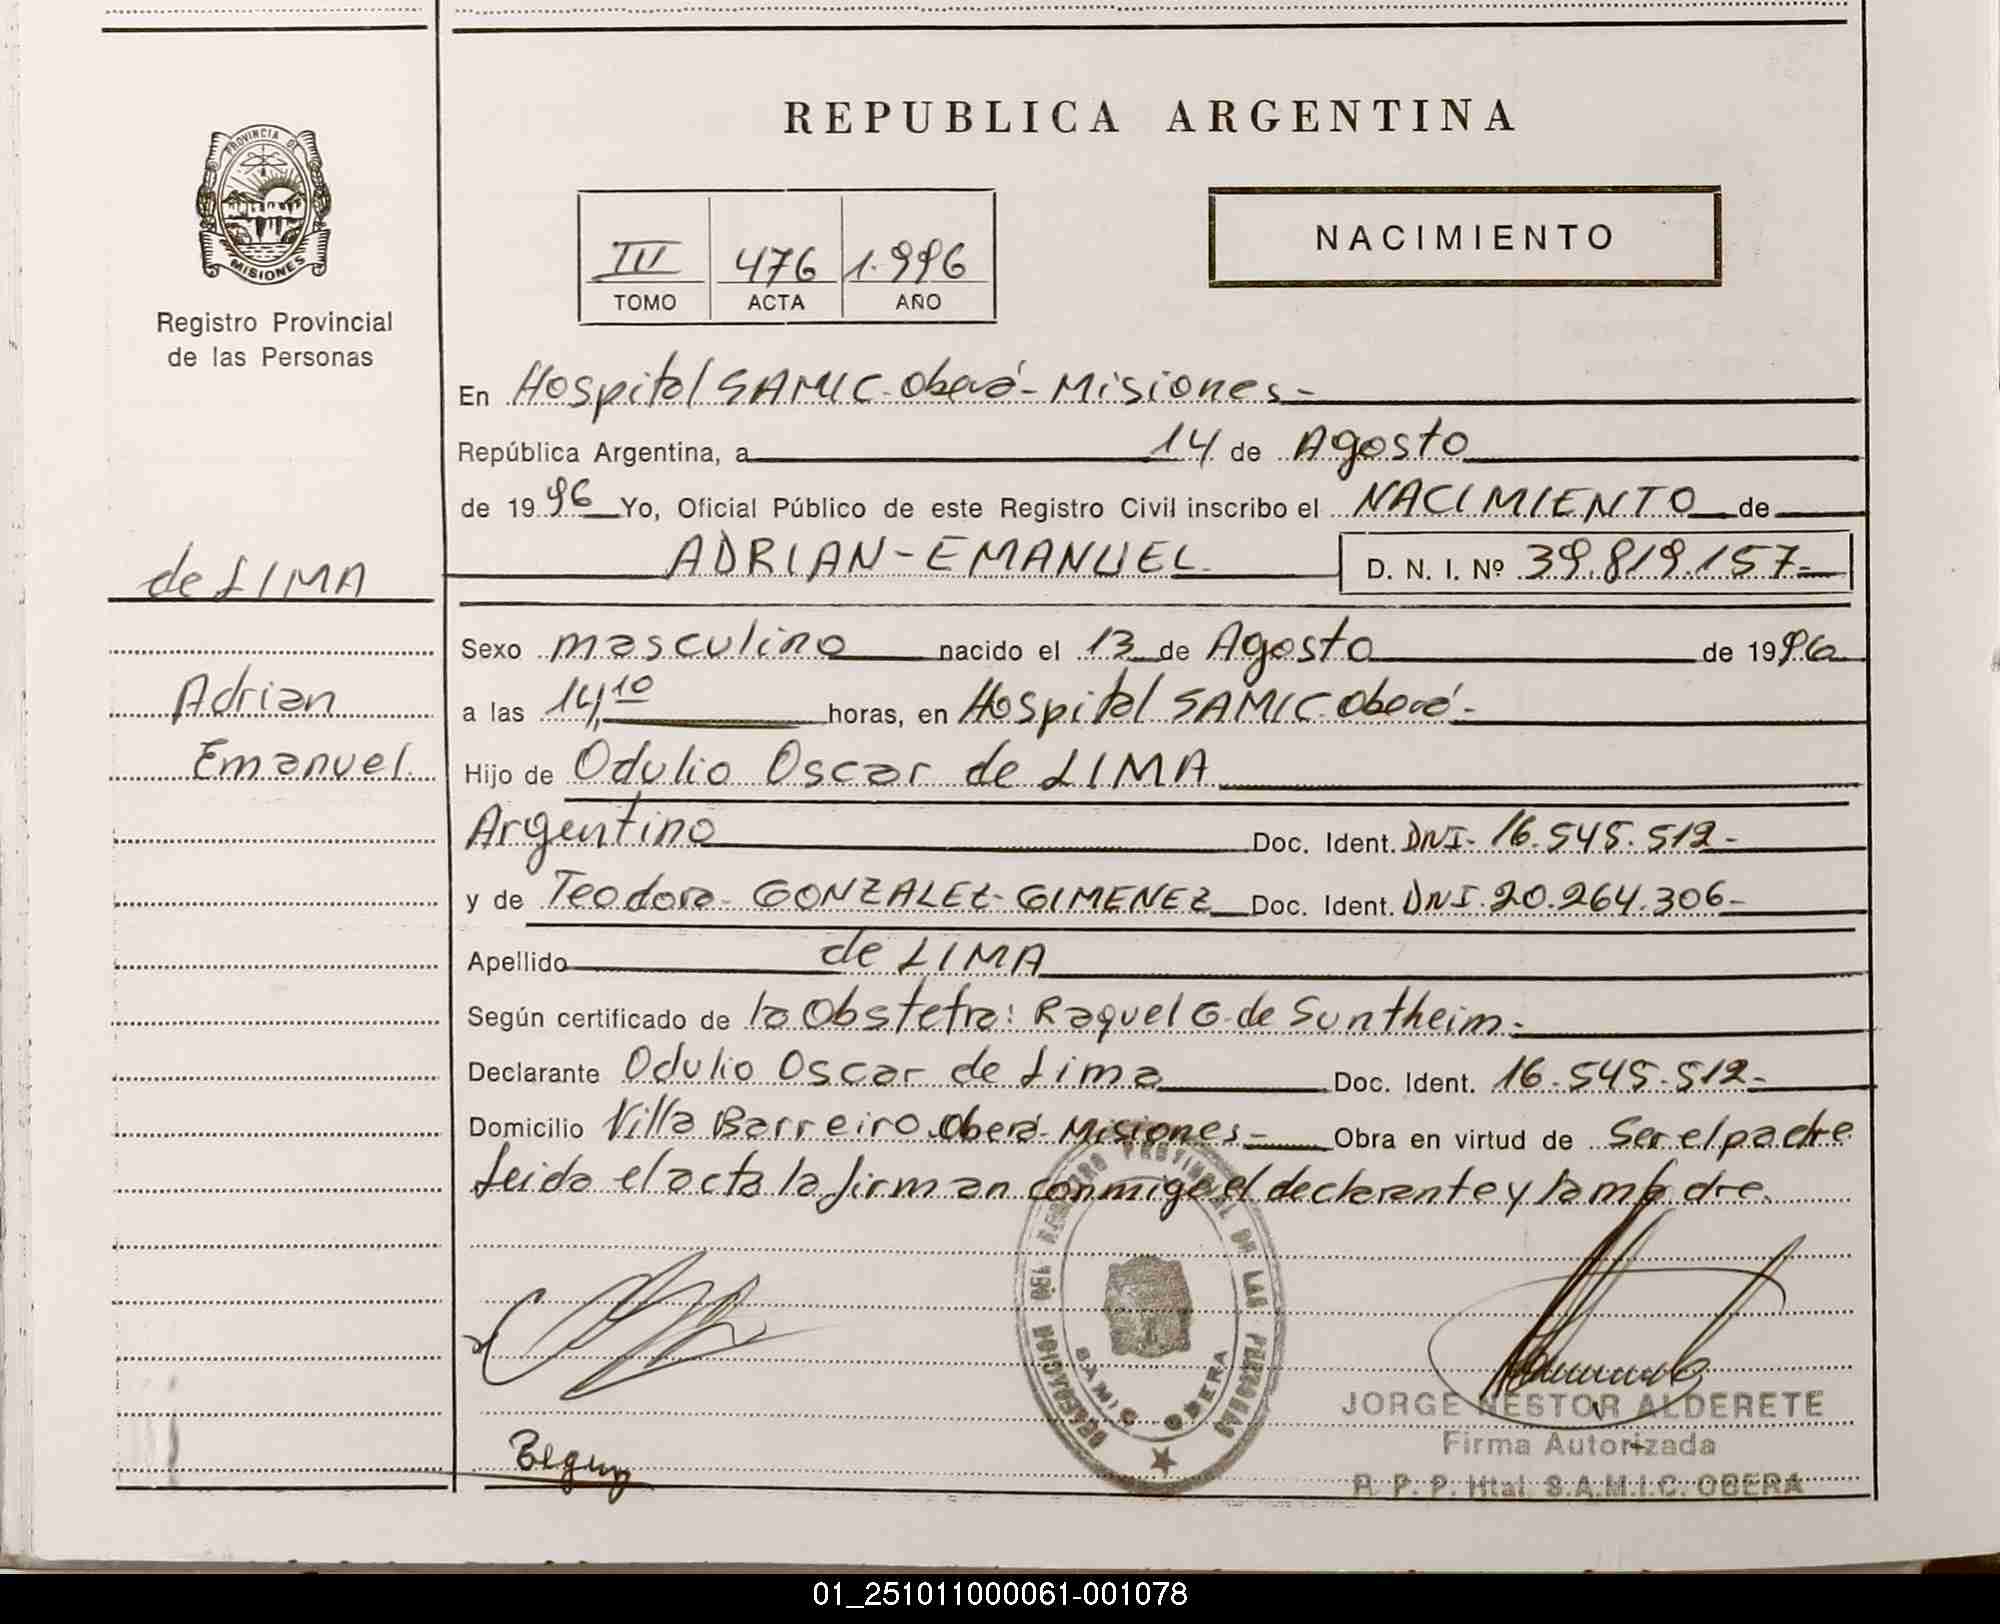 REPUBLICA ARGENTINA
PROVINCIA DE
MISIONES
Registro Provincial
de las Personas
III 476 1.996
TOMO ACTA AÑO
NACIMIENTO
En Hospital SAMIC-Oberá-Misiones-
República Argentina, a 14 de Agosto
de 1996 Yo, Oficial Público de este Registro Civil inscribo el NACIMIENTO de
ADRIAN-EMANUEL. D. N. I. Nº 39.819.157-
de LIMA
Adrian
Emanuel.
Sexo masculino nacido el 13 de Agosto de 1996
a las 14,10 horas, en Hospital SAMIC-Oberá-
Hijo de Odulio Oscar de LIMA
Argentino Doc. Ident. DNI- 16.545.512-
y de Teodora- GONZALEZ-GIMENEZ Doc. Ident. DNI.20.264.306-
Apellido de LIMA
Según certificado de la Obstetra: Raquel G. de Suntheim.-
Declarante Odulio Oscar de Lima Doc. Ident. 16.545.512-
Domicilio Villa Barreiro-Oberá-Misiones- Obra en virtud de Ser el padre
Leida el acta la firman conmigo el declarante y la madre.
DELEGACION DEL REGISTRO PROVINCIAL DE LAS PERSONAS
SAMIC OBERA
JORGE NESTOR ALDERETE
Firma Autorizada
R. P. P. Htal. S.A.M.I.C. OBERA
01_251011000061-001078